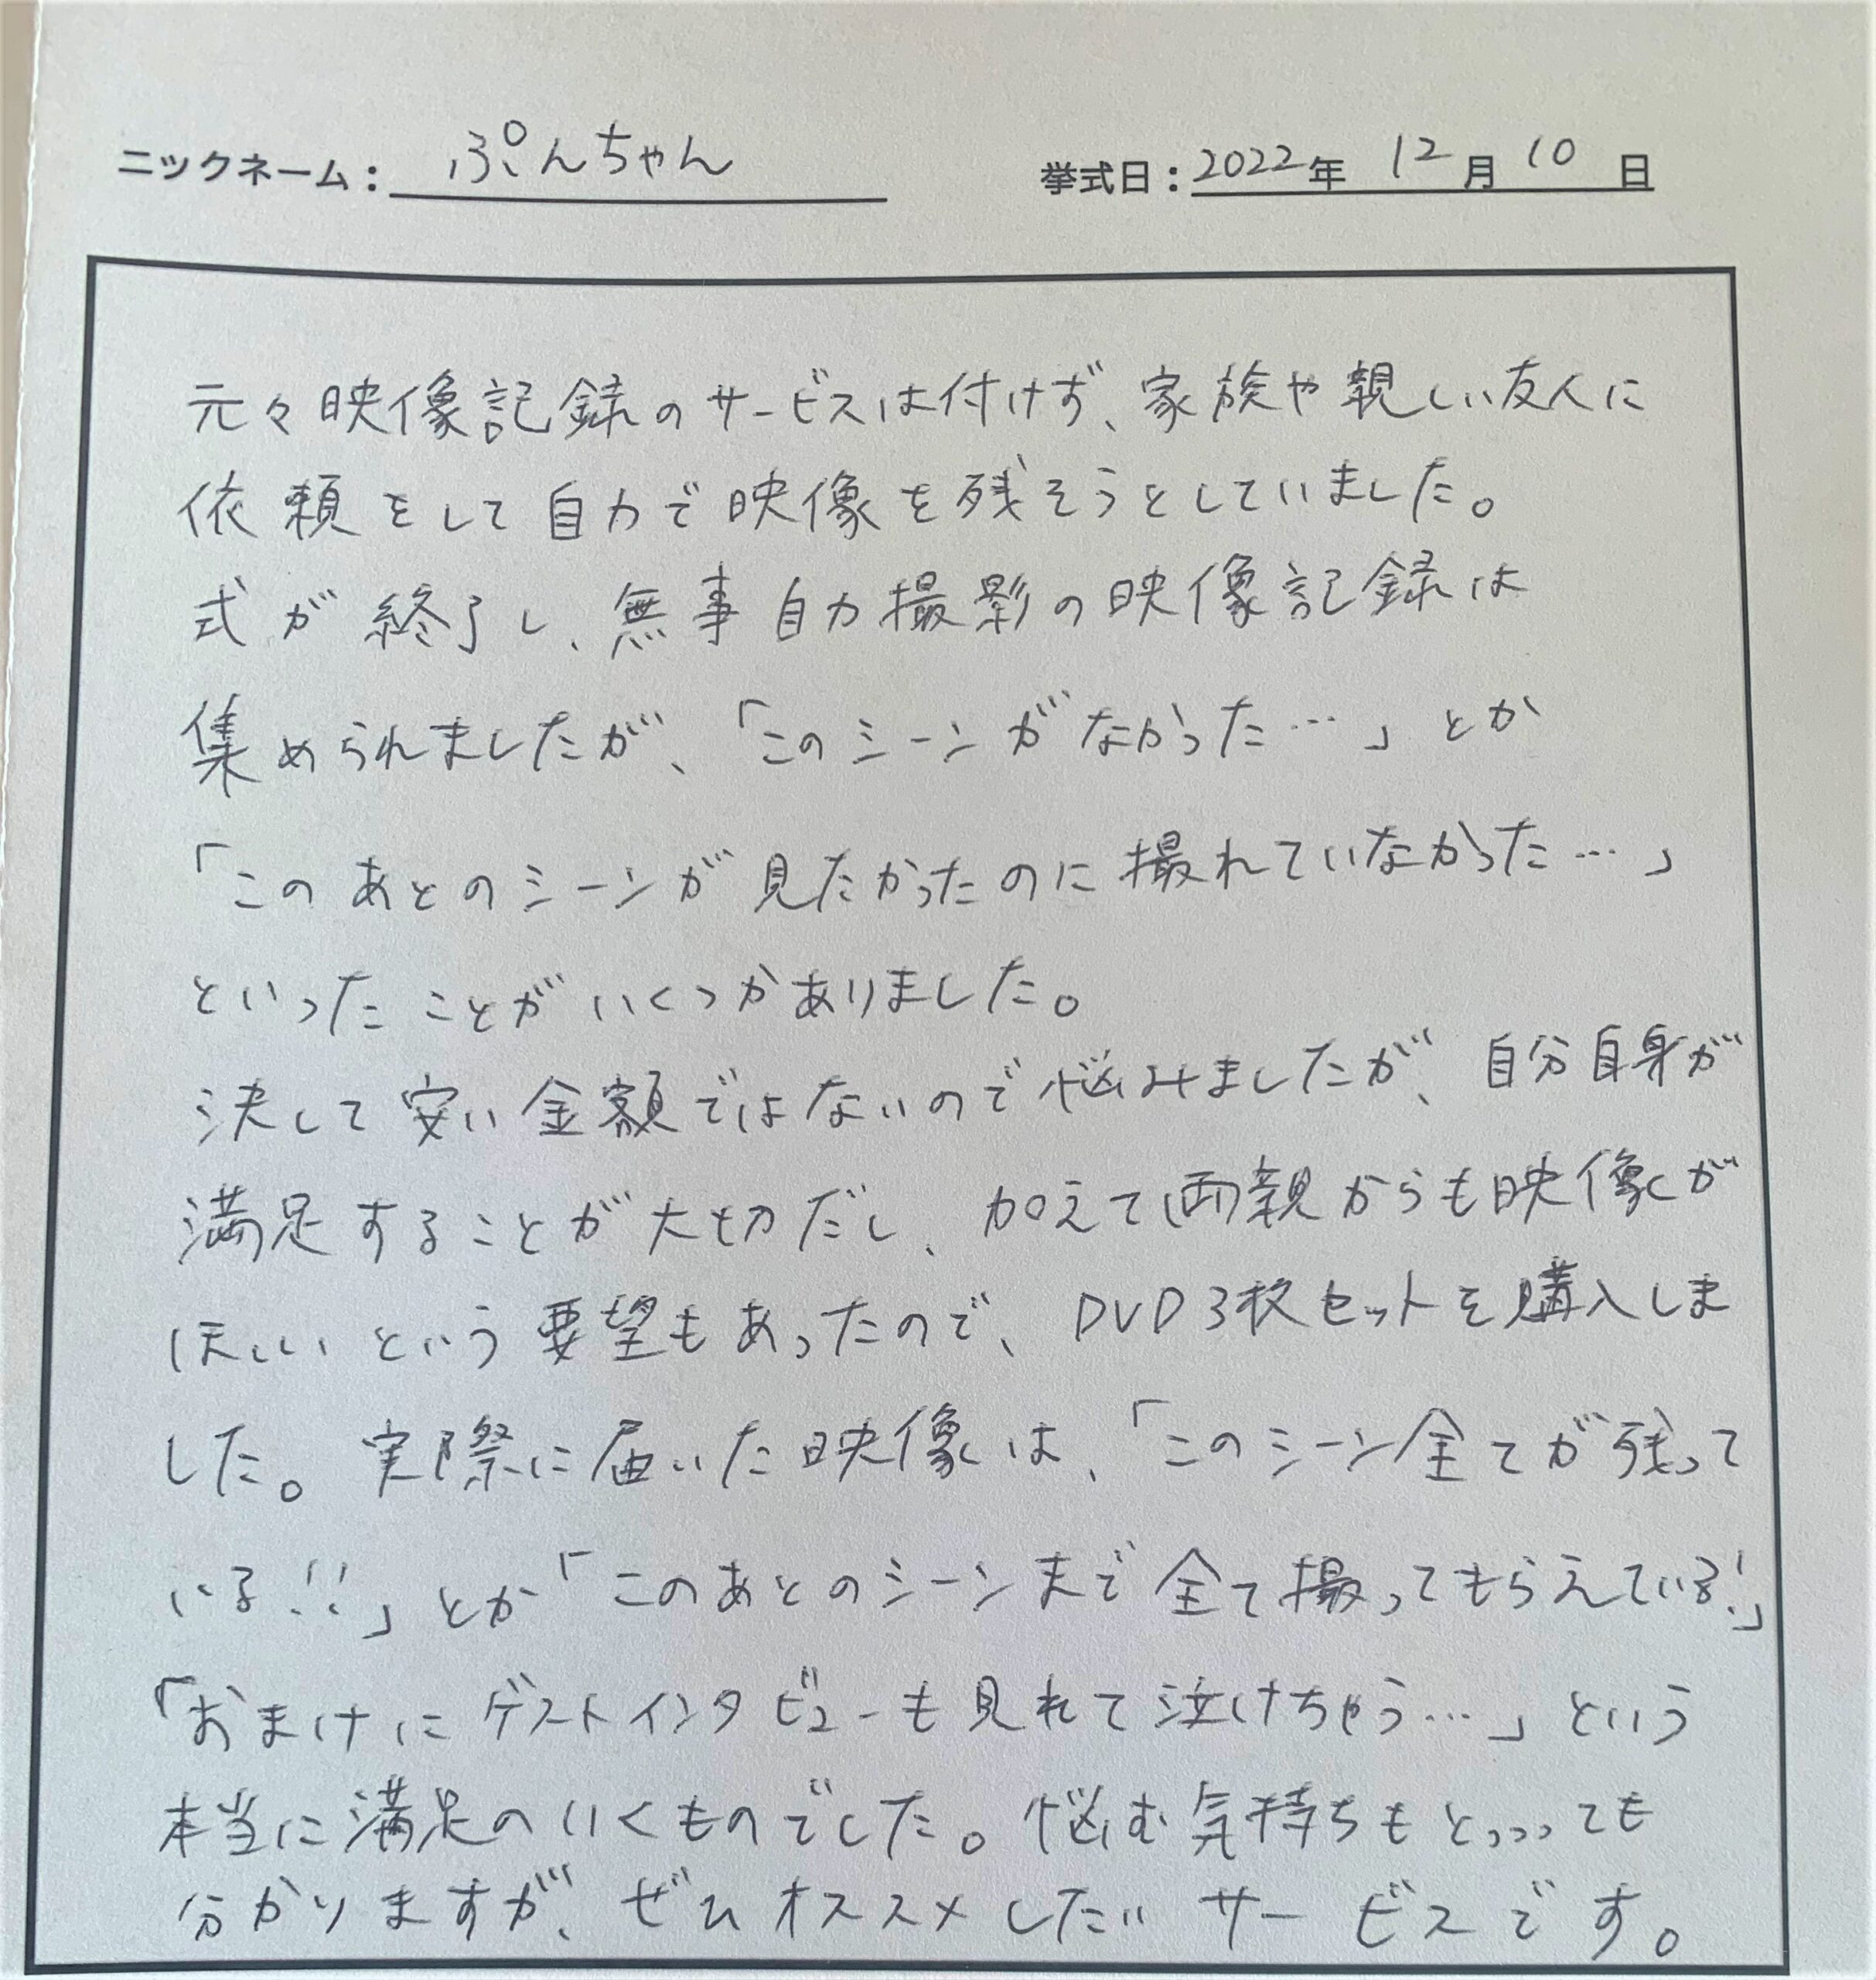 ニックネーム：ぷんちゃん 挙式日：2022年 12月 10日
元々映像記録のサービスは付けず、家族や親しい友人に
依頼をして自力で映像を残そうとしていました。
式が終了し、無事自力撮影の映像記録は
集められましたが、「このシーンがなかった…」とか
「このあとのシーンが見たかったのに撮れていなかった…」
といったことがいくつかありました。
決して安い金額ではないので悩みましたが、自分自身が
満足することが大切だし、加えて両親からも映像が
ほしいという要望もあったので、DVD3枚セットを購入しま
した。実際に届いた映像は、「このシーン全てが残って
いる!!」とか「このあとのシーンまで全て撮ってもらえている!」
「おまけにゲストインタビューも見れて泣けちゃう…」という
本当に満足のいくものでした。悩む気持ちもとっっっても
分かりますが、ぜひオススメしたいサービスです。